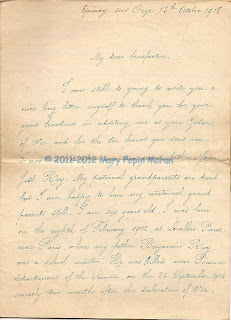 Epinay sur Orge, 13th October 1918
My dear benefactor,
I am still to young to write you a
nice long letter myself to thank you for your
great kindness in adopting me as your Godson
of War and for the ten francs you sent me.
© 2011-2012 Mary Pepin Mahan
Roy. My paternal grandparents are dead,
but I am happy to have my maternal grand
parents still. I am six years old. I was born
on the eighth of February 1912, at
near Paris where my father Benjamin Roy
was a school master. He was killed near Peronne
departement of the Somme, on the 26 September 1914
scarcely two months after the declaration of War.